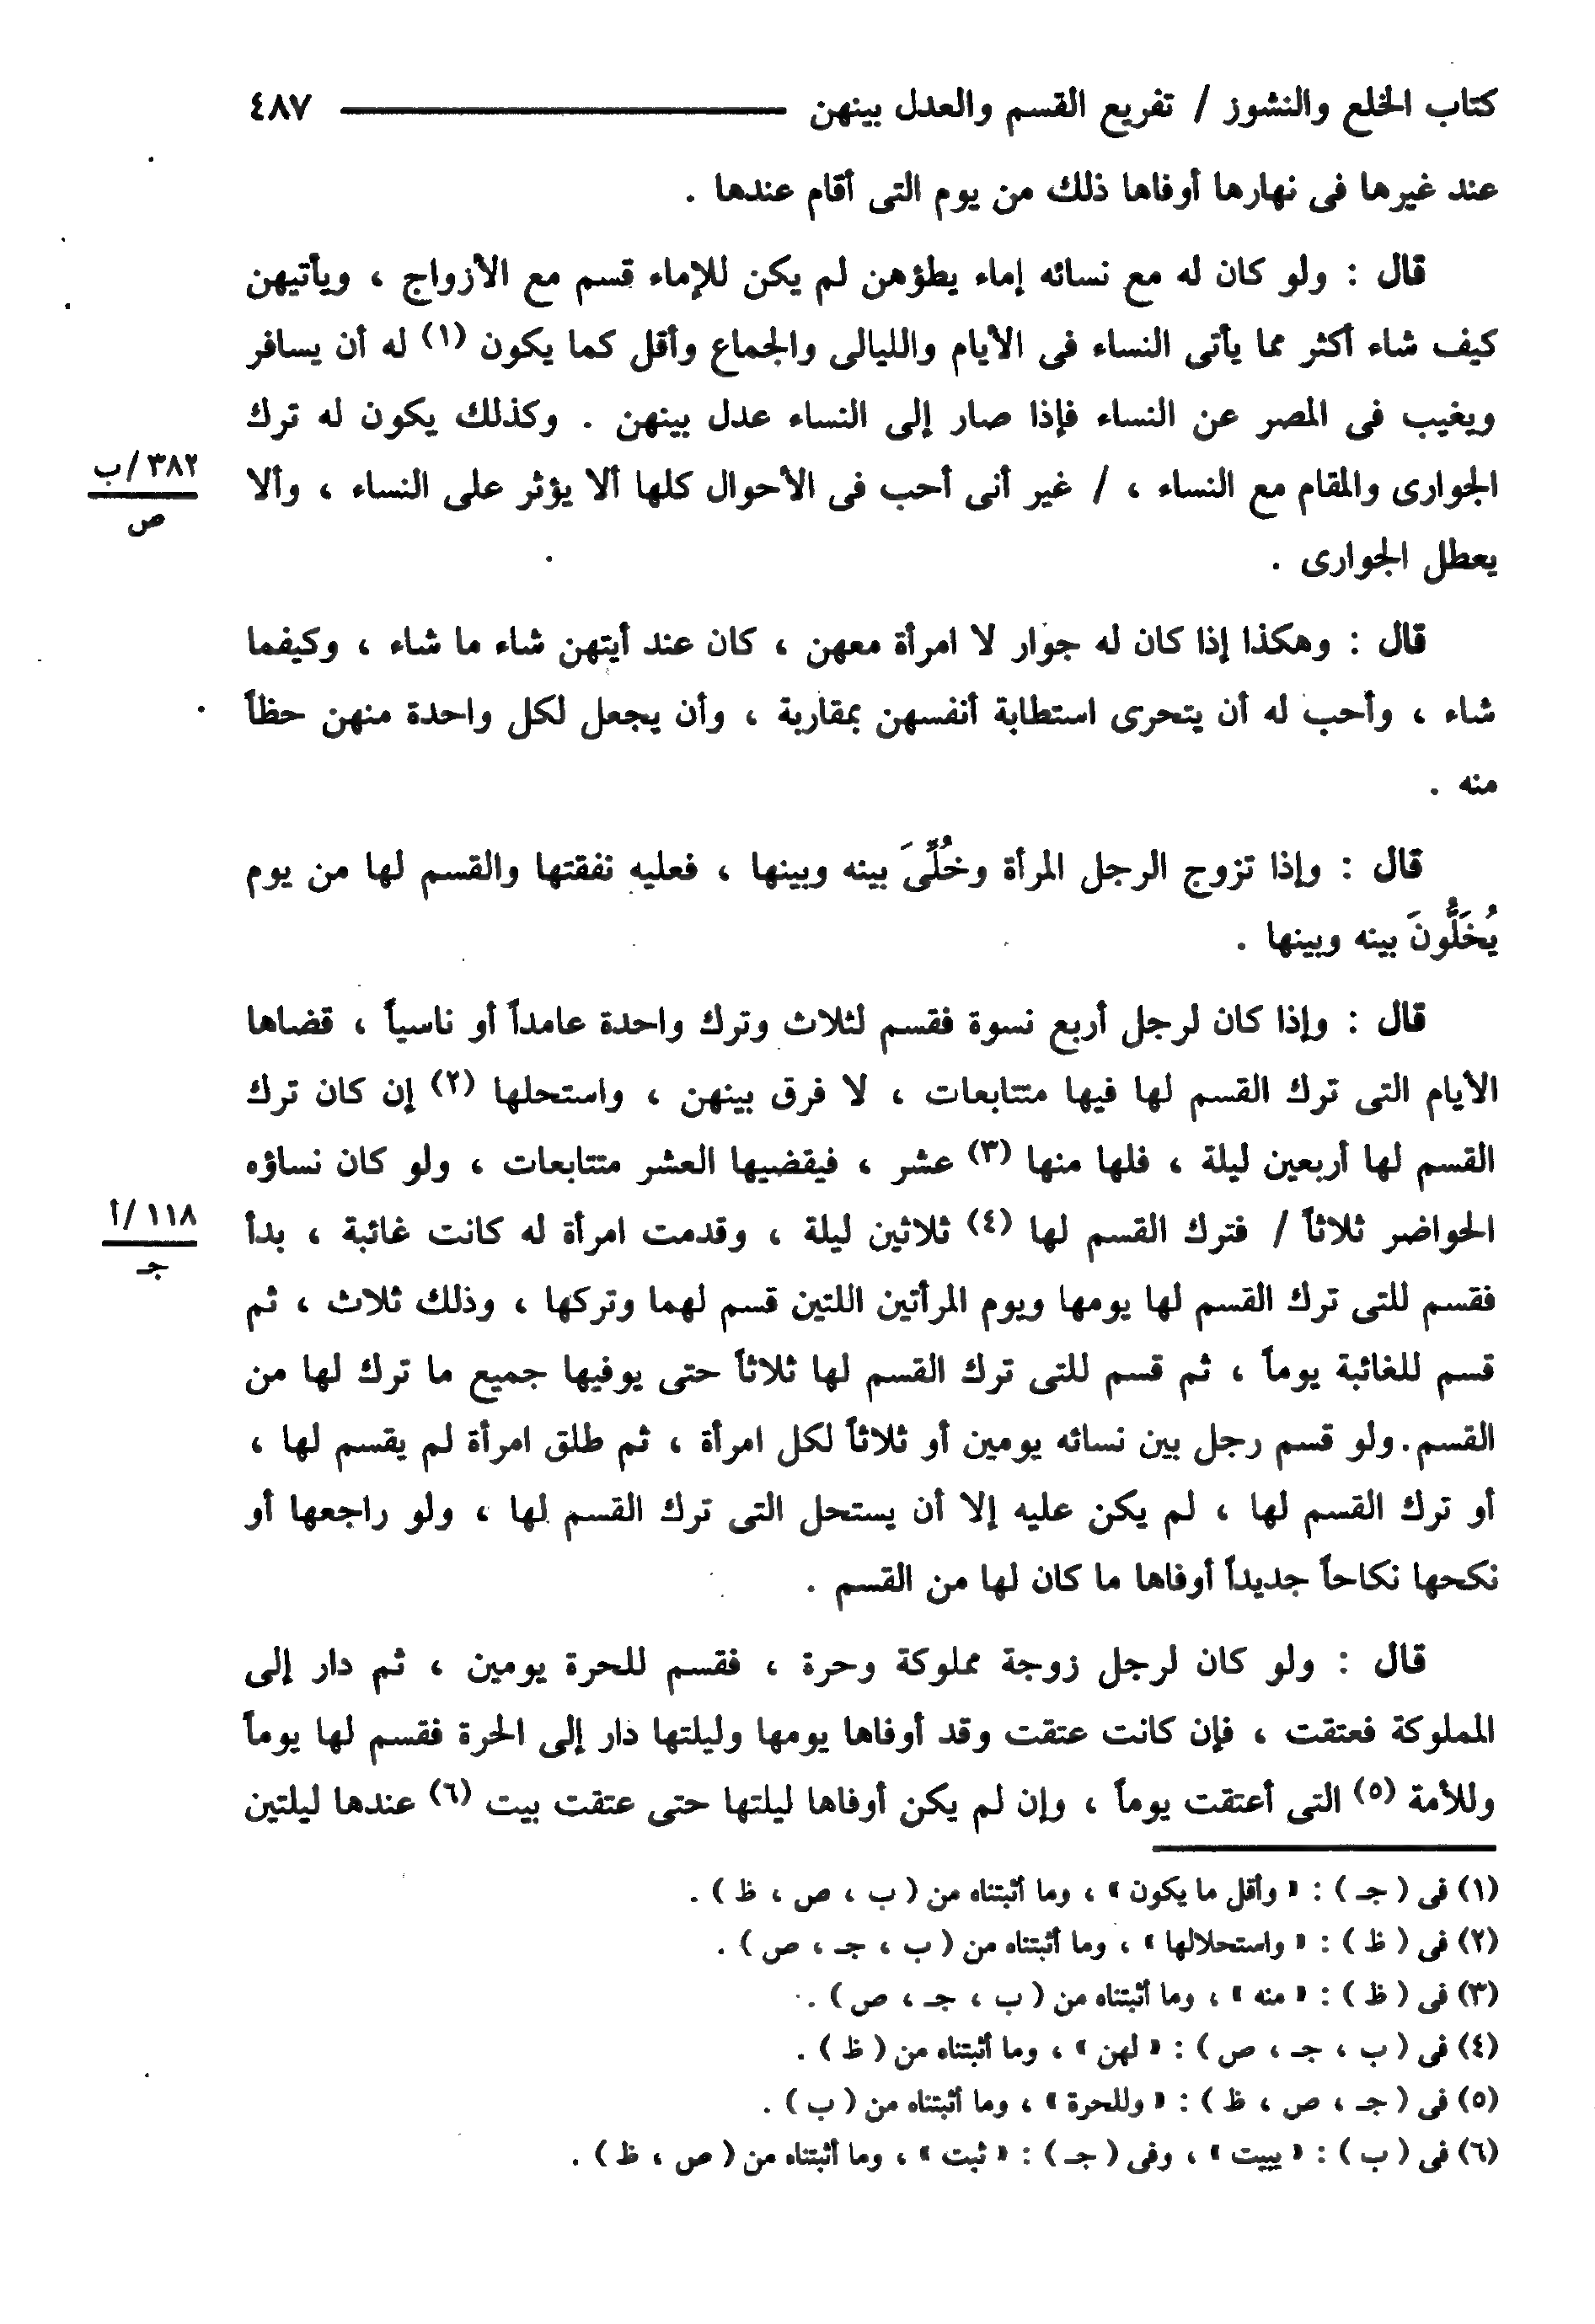 كتاب الخلع والنشوز / تفريع القسم والعدل بينهن ٤٨٧
عند غيرها فى نهارها أوفاها ذلك من يوم التى أقام عندها .
قال : ولو كان له مع نسائه إماء يطؤهن لم يكن للإماء قسم مع الأزواج ، ويأتيهن
كيف شاء أكثر مما يأتى النساء فى الأيام والليالى والجماع وأقل كما يكون (١) له أن يسافر
ويغيب فى المصر عن النساء فإذا صار إلى النساء عدل بينهن . وكذلك يكون له ترك
الجوارى والمقام مع النساء ، / غير أنى أحب فى الأحوال كلها ألا يؤثر على النساء ، وألا
٣٨٢/ب
ص
يعطل الجوارى .
قال : وهكذا إذا كان له جوار لا امرأة معهن ، كان عند أيتهن شاء ما شاء ، وكيفما
شاء ، وأحب له أن يتحرى استطابة أنفسهن بمقاربة ، وأن يجعل لكل واحدة منهن حظاً
منه .
قال : وإذا تزوج الرجل المرأة وخُلِّىَ بينه وبينها ، فعليه نفقتها والقسم لها من يوم
يُخَلُّونَ بينه وبينها .
قال : وإذا كان لرجل أربع نسوة فقسم لثلاث وترك واحدة عامداً أو ناسياً ، قضاها
الأيام التى ترك القسم لها فيها متتابعات ، لا فرق بينهن ، واستحلها (٢) إن كان ترك
القسم لها أربعين ليلة ، فلها منها (٣) عشر ، فيقضيها العشر متتابعات ، ولو كان نساؤه
الحواضر ثلاثاً / فترك القسم لها (٤) ثلاثين ليلة ، وقدمت امرأة له كانت غائبة ، بدأ
١١٨/أ
جـ
فقسم للتى ترك القسم لها يومها ويوم المرأتين اللتين قسم لهما وتركها ، وذلك ثلاث ، ثم
قسم للغائبة يوماً ، ثم قسم للتى ترك القسم لها ثلاثاً حتى يوفيها جميع ما ترك لها من
القسم . ولو قسم رجل بين نسائه يومين أو ثلاثاً لكل امرأة ، ثم طلق امرأة لم يقسم لها ،
أو ترك القسم لها ، لم يكن عليه إلا أن يستحل التى ترك القسم لها ، ولو راجعها أو
نكحها نكاحاً جديداً أوفاها ما كان لها من القسم .
قال : ولو كان لرجل زوجة مملوكة وحرة ، فقسم للحرة يومين ، ثم دار إلى
المملوكة فعتقت ، فإن كانت عتقت وقد أوفاها يومها وليلتها دار إلى الحرة فقسم لها يوماً
وللأمة (٥) التى أعتقت يوماً ، وإن لم يكن أوفاها ليلتها حتى عتقت بيت (٦) عندها ليلتين
(١) فى ( جـ ) : « وأقل ما يكون » ، وما أثبتناه من ( ب ، ص ، ظ ) .
(٢) فى ( ظ ) : « واستحلالها » ، وما أثبتناه من ( ب ، جـ ، ص ) .
(٣) فى ( ظ ) : « منه » ، وما أثبتناه من ( ب ، جـ ، ص ) .
(٤) فى ( ب ، جـ ، ص ) : « لهن » ، وما أثبتناه من ( ظ ) .
(٥) فى ( جـ ، ص ، ظ ) : « وللحرة » ، وما أثبتناه من ( ب ) .
(٦) فى ( ب ) : « يبيت » ، وفى ( جـ ) : « ثبت » ، وما أثبتناه من ( ص ، ظ ) .